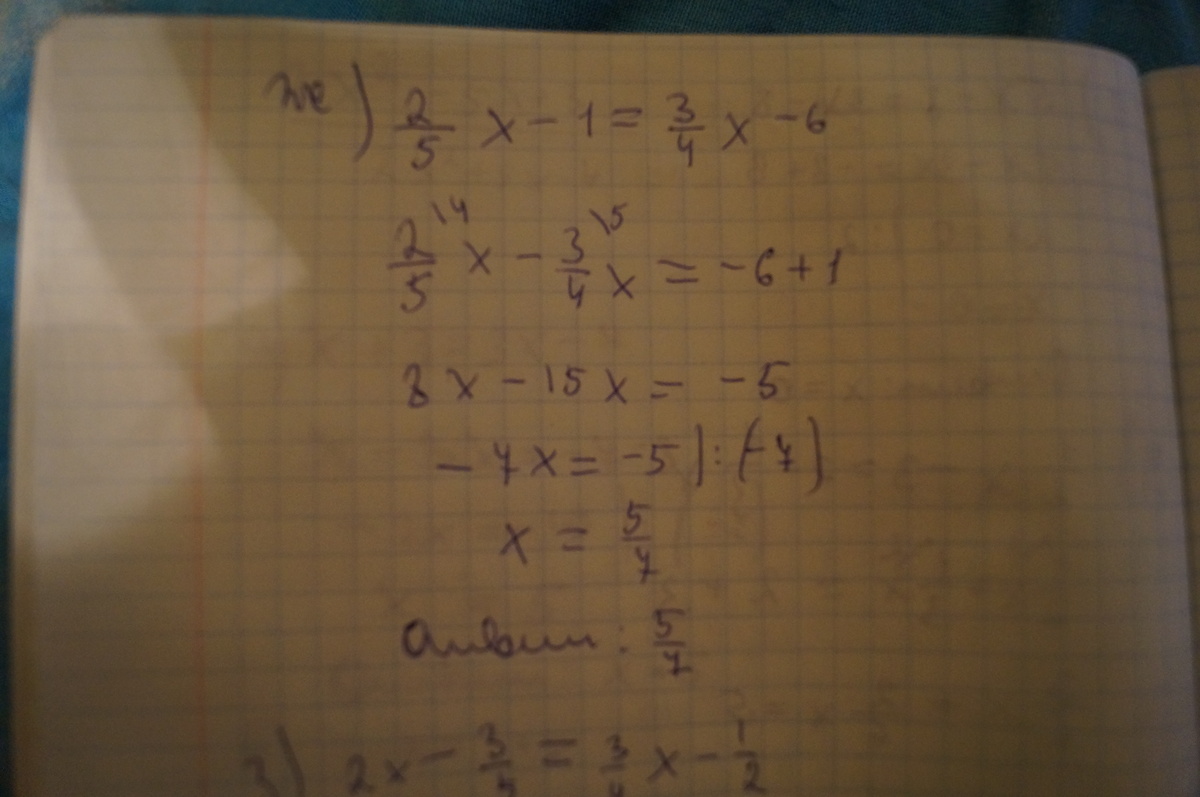 же) 2/5 x - 1 = 3/4 x - 6
2/5 \4 x - 3/4 \5 x = -6 + 1
8x - 15x = -5
-7x = -5 | : (-7)
x = 5/7
Ответ: 5/7
з) 2x - 3/5 = 3/4 x - 1/2